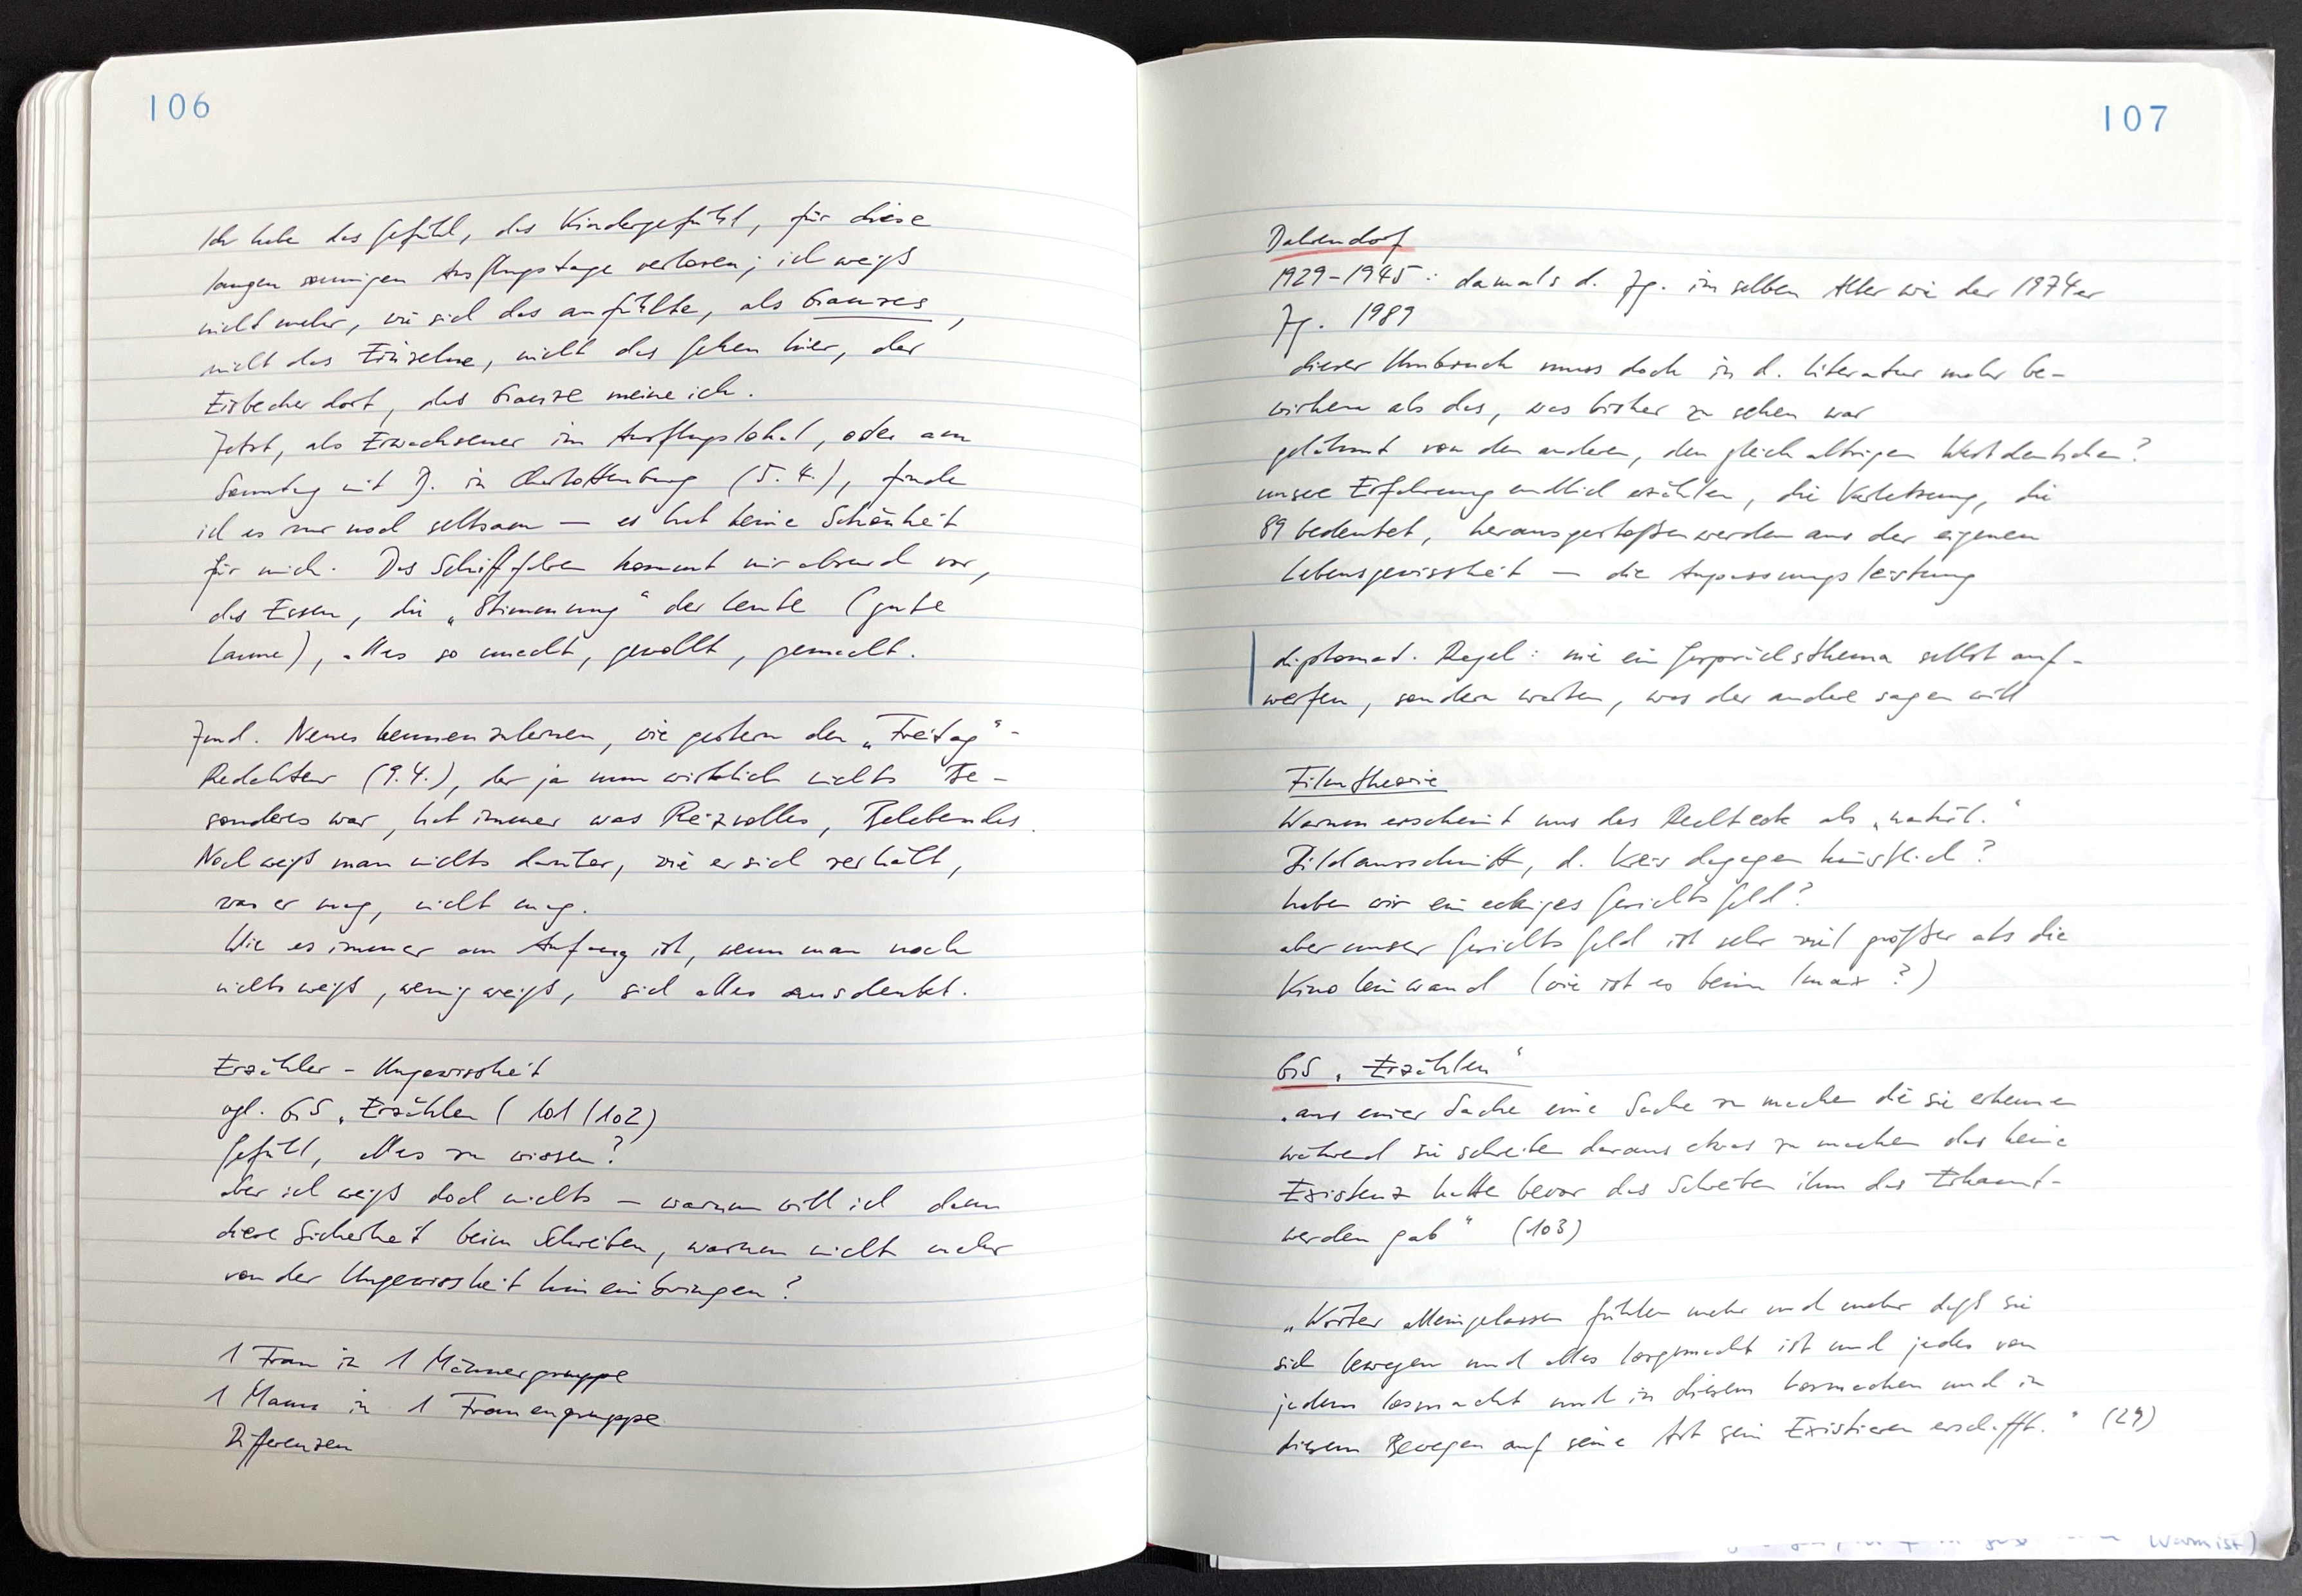 106
Ich habe das Gefühl, das Kindergefühl, für diese
langen sonnigen Ausflugstage verloren; ich weiß
nicht mehr, wie sich das anfühlte, als Ganzes,
nicht das Einzelne, nicht das Gehen hier, der
Eisbecher dort, das Ganze meine ich.
Jetzt, als Erwachsener im Ausflugslokal, oder am
Sonntag mit J. in Charlottenburg (5.4.), finde
ich es nur noch seltsam – es hat keine Schönheit
für mich. Das Schifffahren kommt mir absurd vor,
das Essen, die „Stimmung“ der Leute (gute
Laune), alles so unecht, gewollt, gemacht.
Jmd. Neues kennenzulernen, wie gestern den „Freitag“-
Redakteur (9.4.), der ja nun wirklich nichts Be-
sonderes war, hat immer was Reizvolles, Belebendes.
Noch weiß man nichts darüber, wie er sich verhält,
was er mag, nicht mag.
Wie es immer am Anfang ist, wenn man noch
nichts weiß, wenig weiß, sich alles ausdenkt.
Erzähler – Ungewissheit
vgl. GS „Erzählen (101/102)
Gefühl, alles zu wissen?
aber ich weiß doch nichts – warum will ich dann
diese Sicherheit beim Schreiben, warum nicht mehr
von der Ungewissheit hineinbringen?
1 Frau in 1 Männergruppe
1 Mann in 1 Frauengruppe
Differenzen
107
Dahrendorf
1929–1945: damals d. Jg. im selben Alter wie der 1974er
Jg. 1989
dieser Umbruch muss doch in d. Literatur mehr be-
wirken als das, was bisher zu sehen war
gelähmt von den anderen, den gleichaltrigen Westdeutschen?
unsere Erfahrung endlich erzählen, die Verletzung, die
89 bedeutet, herausgestoßen werden aus der eigenen
Lebensgewissheit – die Anpassungsleistung
diplomat. Regel: nie ein Gesprächsthema selbst auf-
werfen, sondern warten, was der andere sagen will
Filmtheorie
Warum erscheint uns das Rechteck als „natürl.“
Bildausschnitt, d. Kreis dagegen künstlich?
haben wir ein eckiges Gesichtsfeld?
aber unser Gesichtsfeld ist sehr viel größer als die
Kinoleinwand (wie ist es beim Imax?)
GS „Erzählen“
„aus einer Sache eine Sache zu machen die sie erkennen
während sie schreiben daraus etwas zu machen das keine
Existenz hatte bevor das Schreiben ihm das Erkannt-
werden gab“ (103)
„Wörter alleingelassen fühlen mehr und mehr daß sie
sich bewegen und alles losgemacht ist und jedes von
jedem losmacht und in diesem Losmachen und in
diesem Bewegen auf seine Art sein Existieren erschafft.“ (29)
warm ist)